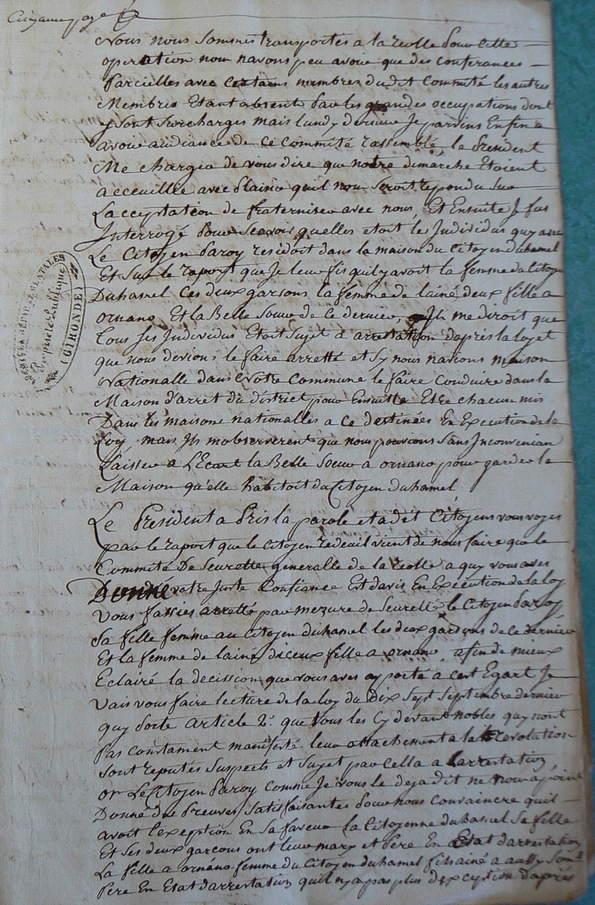 Cinquieme page
Nous nous sommes transportes a la reolle pour cette
operation nous navons peu avoir que des conferances
Parcielles avec certains membres dudit Committé les autres
Membres Etant absent Par les grandes occupations dont
y sont surcharges mais lundy dernier Je parvins Enfin a
avoir audiance de ce Committé rassemblé, le President
Me chargia de vous dire que notre demarche Etoient
acceuillie avec Plaisir quil nous seroit repondu sur
La cceptation de fraterniser avec nous, Et Ensuite J fus
Interrogé pour scavoir quelles etoit les Individus quy avec
Le Citoyen Paroy residoit dans la maison du Citoyen duhamel
Et sur le raport que Je leur fis quil y avoit la femme du Citoyen
Duhamel Ces deux garsons la femme de lainé deux fille a
ornano Et la Belle Soeur de le dernier, Ils me diroit que
tous ses Individus Etoit sujet d arrestation daprès la loy et
que nous devions le faire arretté et sy nous navions maison
Nationalle dans Notre Commune le faire Conduire dans la
Maison d'arret du district pour Ensuitte Etre chacun mis
Dans les maisons nationalles a ce destinées En Execution de la
Loy mais Ils mobserverent que nous pouvions sans Inconvenian
Laisser a L'Ecart la Belle Soeur a ornano pour garder la
Maison qu'elle habitoit du Citoyen duhamel
Le President a Pris la parole et a dit Citoyens vous voyes
par le raport que le Citoyen redeuil vient de nous faire que le
Committé de seuretté generalle de la reolle a quy vous aves
Donné votre Juste Confiance Est davis En Execution de la loy
vous fassies arretté par mezure de seuretté le Citoyen Paroy
sa fille femme au Citoyen duhamel les deux garsons de ce dernier
Et la femme de lainé de ceux fille a ornano, afin de mieux
Eclairé la decission que vous aves aporté a cert Egart Je
vais vous faire lecture de la loy du Dix sept septembre dernier
quy porte article 2e que tous les cy devant nobles quy nont
Pas constament manifesté leur attachement a la revolution
sont reputés suspects et sujet par cella a larrestation
or Le Citoyen Paroy comme Je vous le deja dit ne nous a point
Donné des Preuves satisfaisantes pour nous convaincre quil
avoit l'exeption En sa faveur la Citoyenne duhamel sa fille
Et ses deux garcons ont leur mary et Pere En Etat darrestation
La fille a ornano femme du Citoyen duhamel fils ainé a aussy son
Pere En Etat darrestation quil ny a pas plus dexception daprès
(GIRONDE)